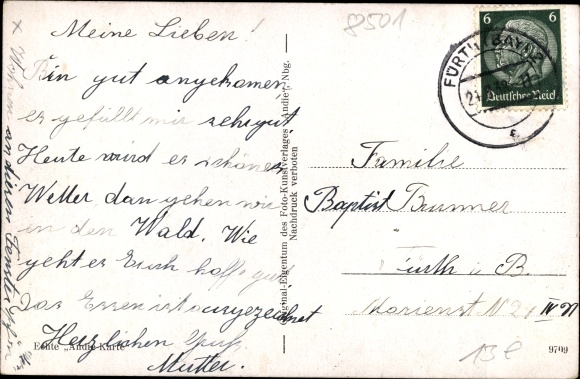 Meine Lieben!
Bin gut angekomen
es gefällt mir sehr gut
Heute wird es schönes
Wetter dan gehen wir
in den Wald. Wie
geht es Euch hoffe gut
Das Essen ist ausgezeichnet
Herzlichen Gruß
Mutter.
x Wohne anderen Fenster
Echte „Andie-Karte"
Original-Eigentum des Foto-Kunstverlages „Andie", Nbg.
Nachdruck verboten
8501
FÜRTH (BAYN)
6 6
Deutsches Reich
Familie
Baptist Brunner
Fürth i. B.
Marienst N 21 IV
13 €
9709